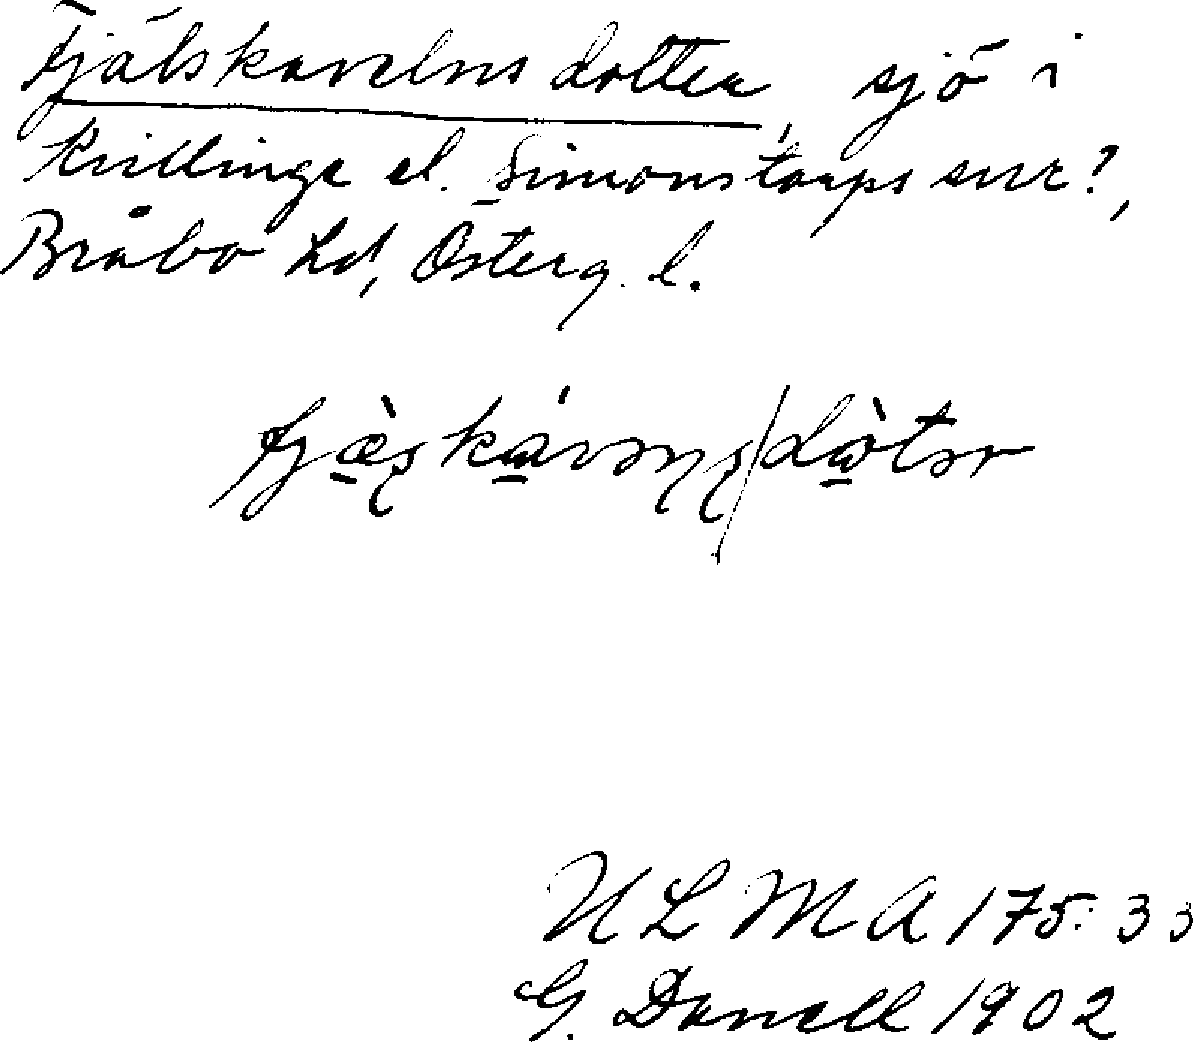 Fjälskavelns dotter, sjö i
Kvillinge el. Simonstorps snr?,
Bråbo hd, Österg. l.
ULMA 175:33
G. Danell 1902